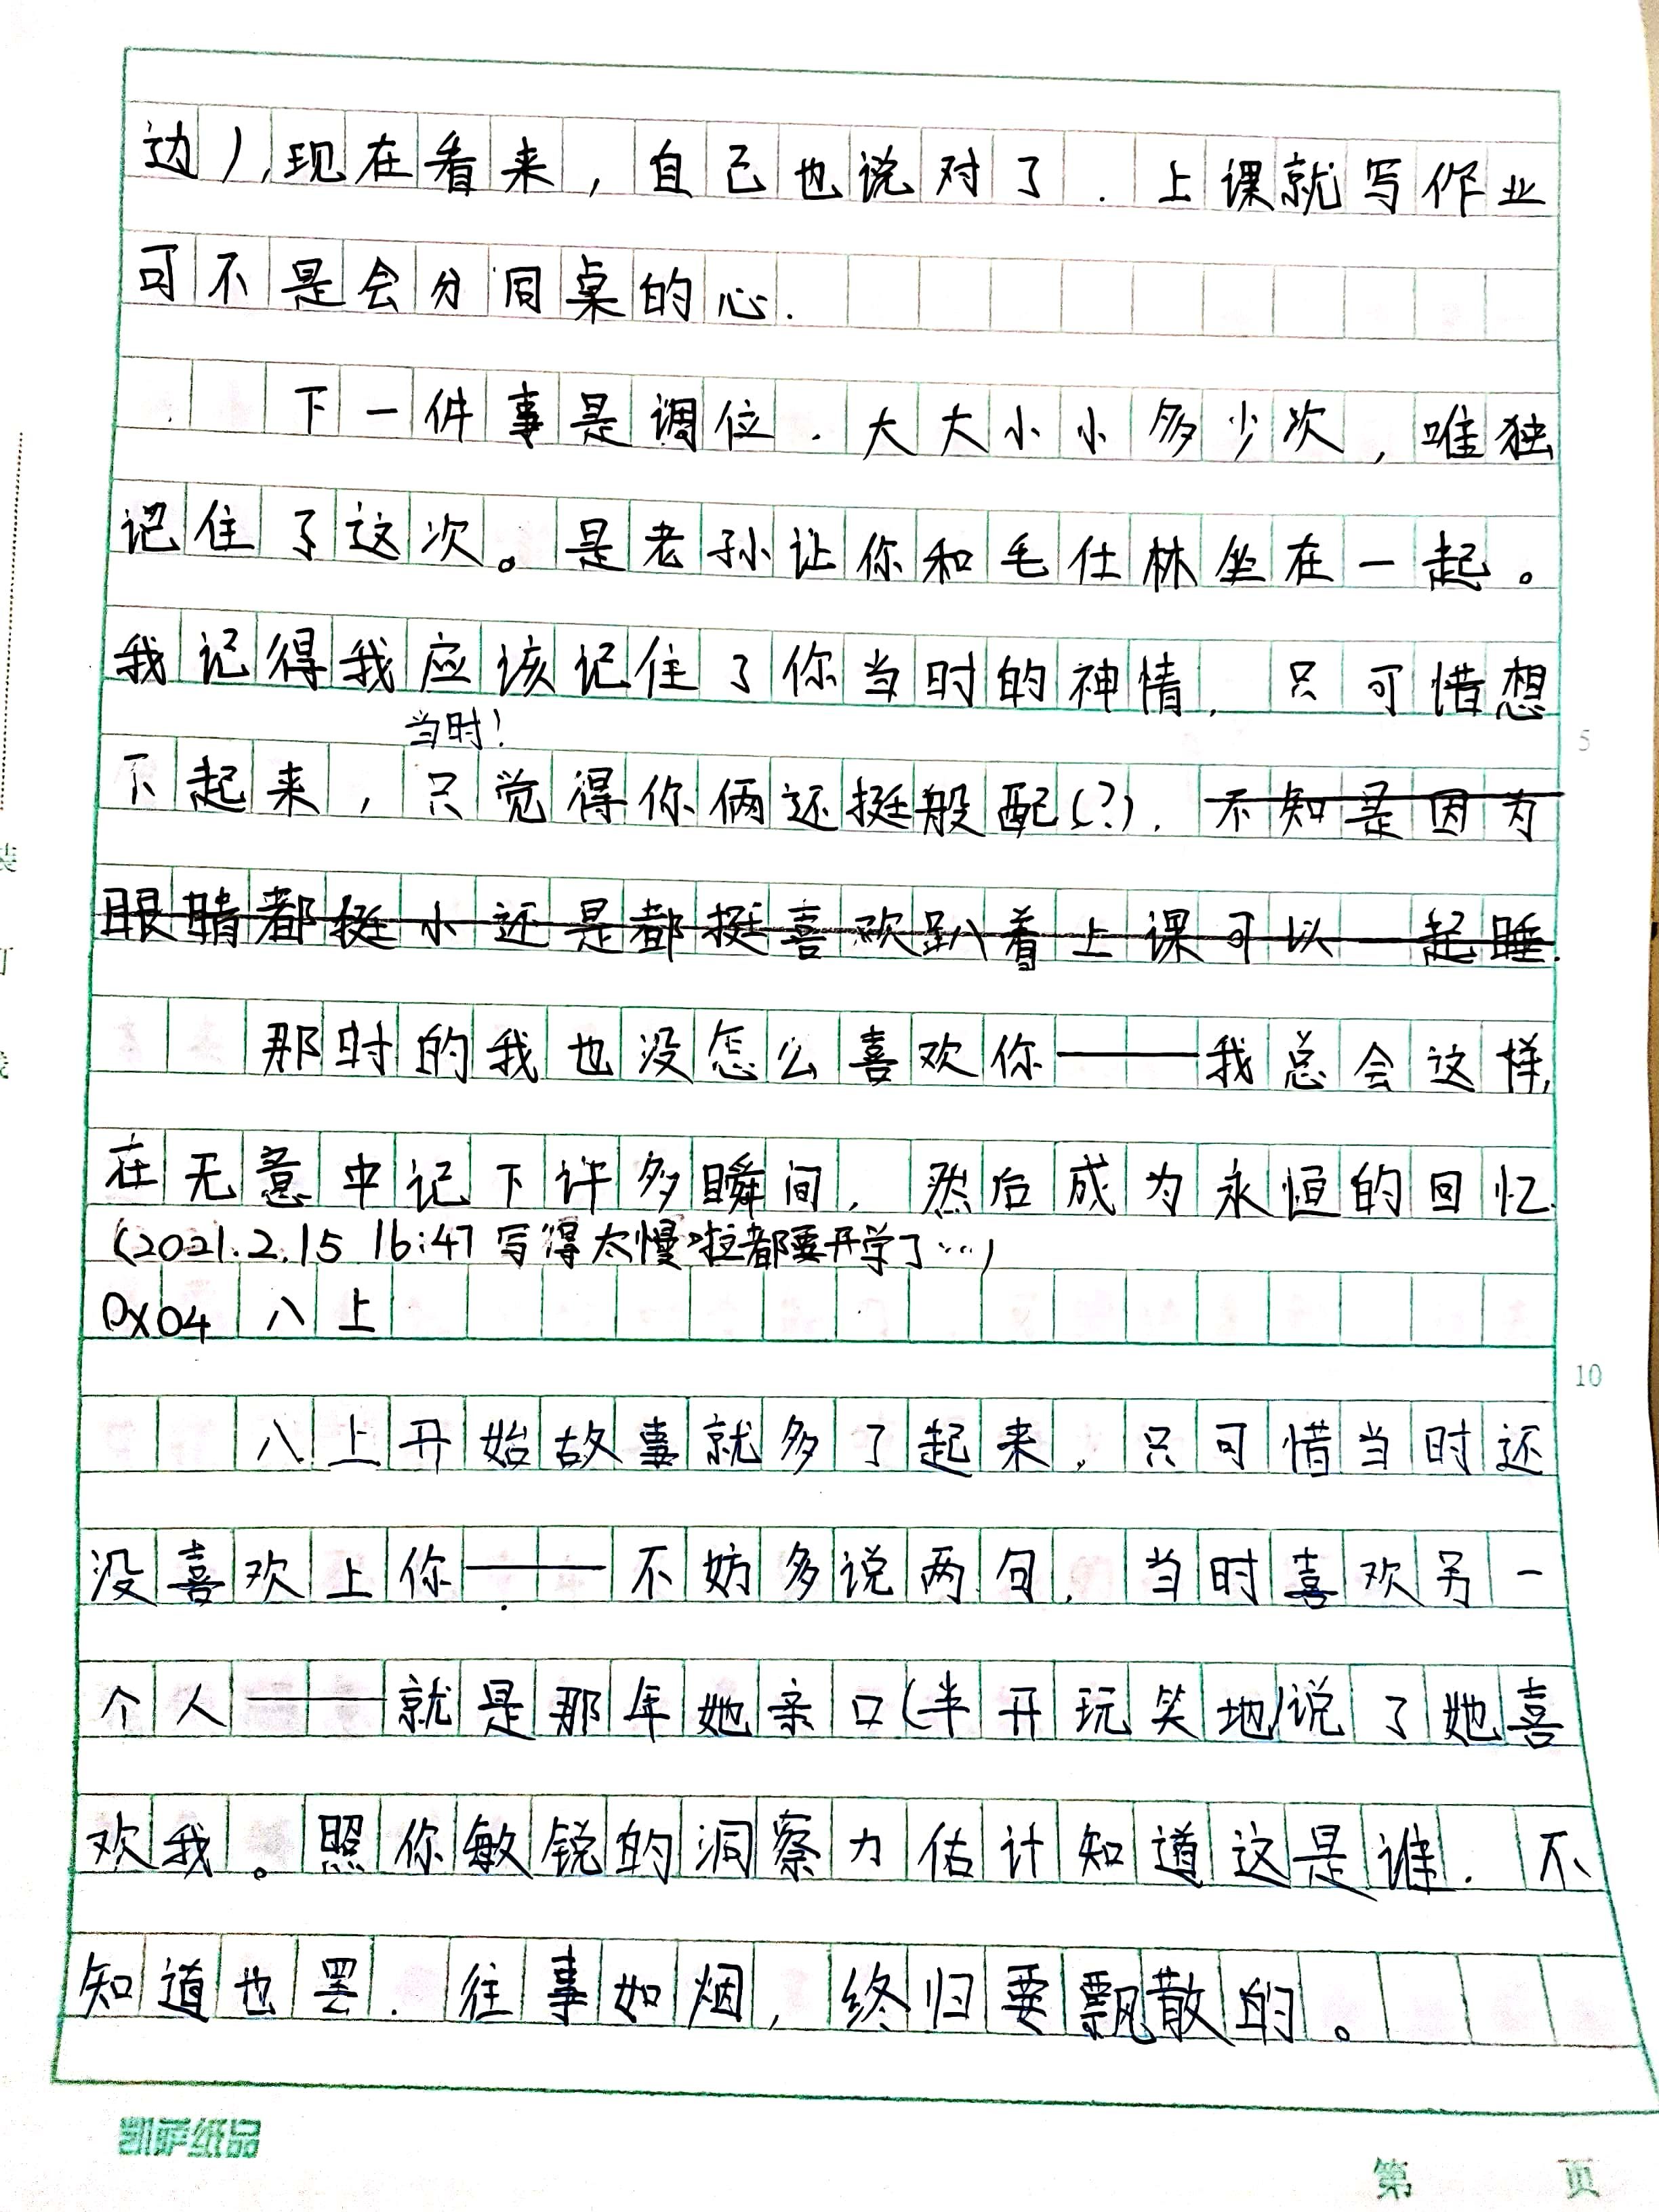 边),现在看来,自己也说对了.上课就写作业
可不是会分同桌的心.
下一件事是调位.大大小小多少次,唯独
记住了这次。是老孙让你和毛仕林坐在一起。
我记得我应该记住了你当时的神情,只可惜想
当时!
不起来,只觉得你俩还挺般配(?).不知是因为
眼睛都挺小还是都挺喜欢趴着上课可以一起睡.
那时的我也没怎么喜欢你——我总会这样,
在无意中记下许多瞬间,然后成为永恒的回忆.
(2021.2.15 16:47 写得太慢啦都要开学了…)
0x04 八上
八上开始故事就多了起来,只可惜当时还
没喜欢上你——不妨多说两句,当时喜欢另一
个人——就是那年她亲口(半开玩笑地)说了她喜
欢我。照你敏锐的洞察力估计知道这是谁.不
知道也罢.往事如烟,终归要飘散的。
5
10
装
订
凯萨纸品
第 页